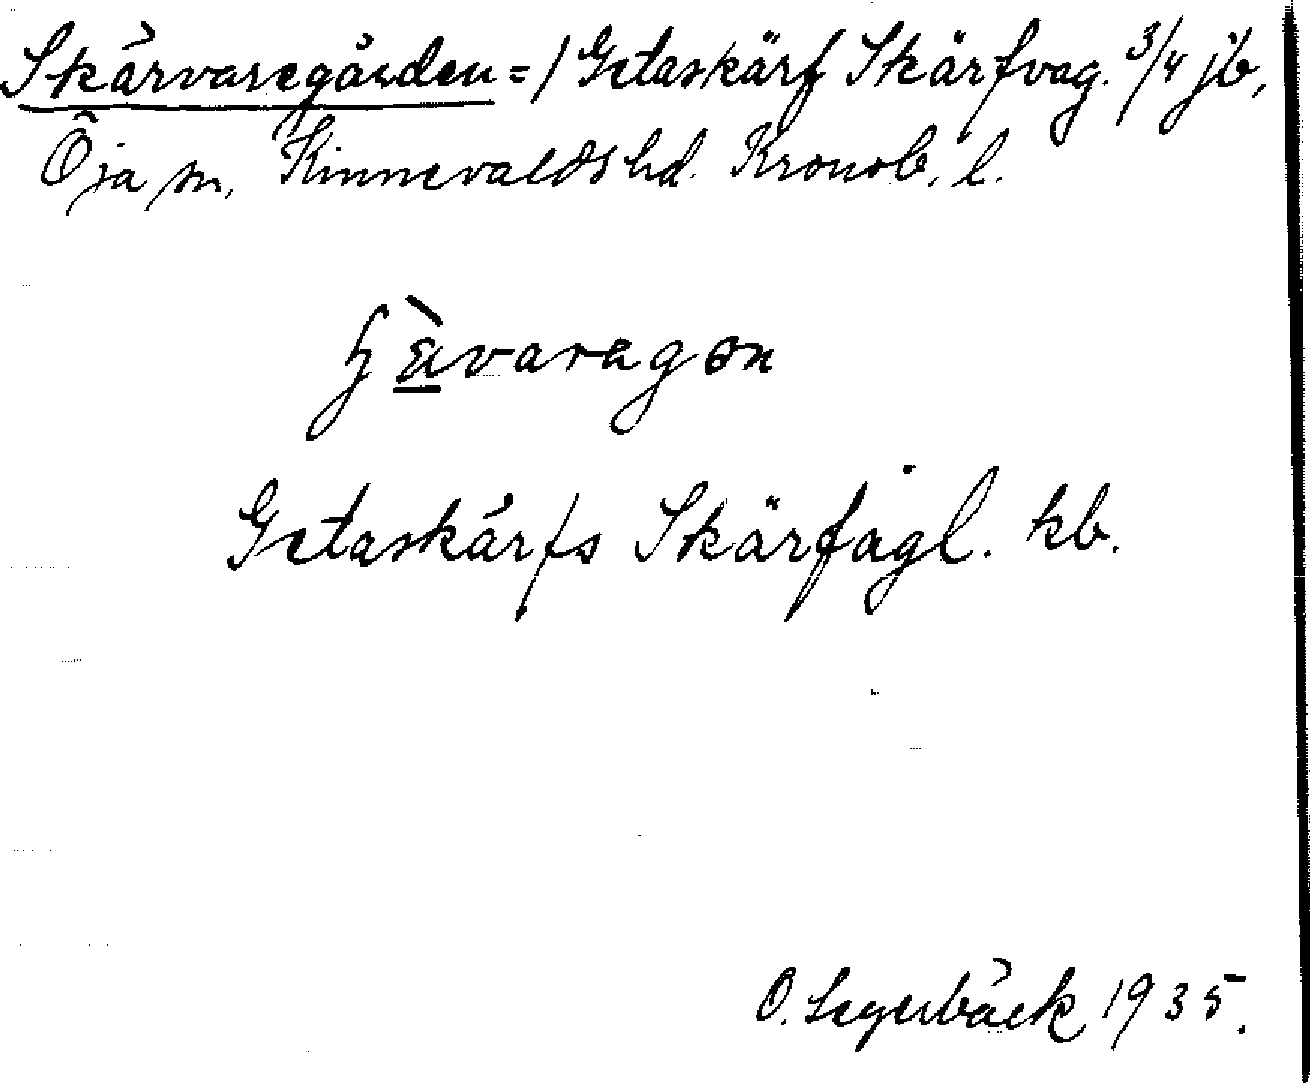 Skärvaregården = / Getaskärf Skärfvag. 3/4 jb,
Öja sn, Kinnevalds hd. Kronob. l.
ɧæ̀varagon
Getaskärfs Skärfagl. kb.
O. Segerbäck 1935.